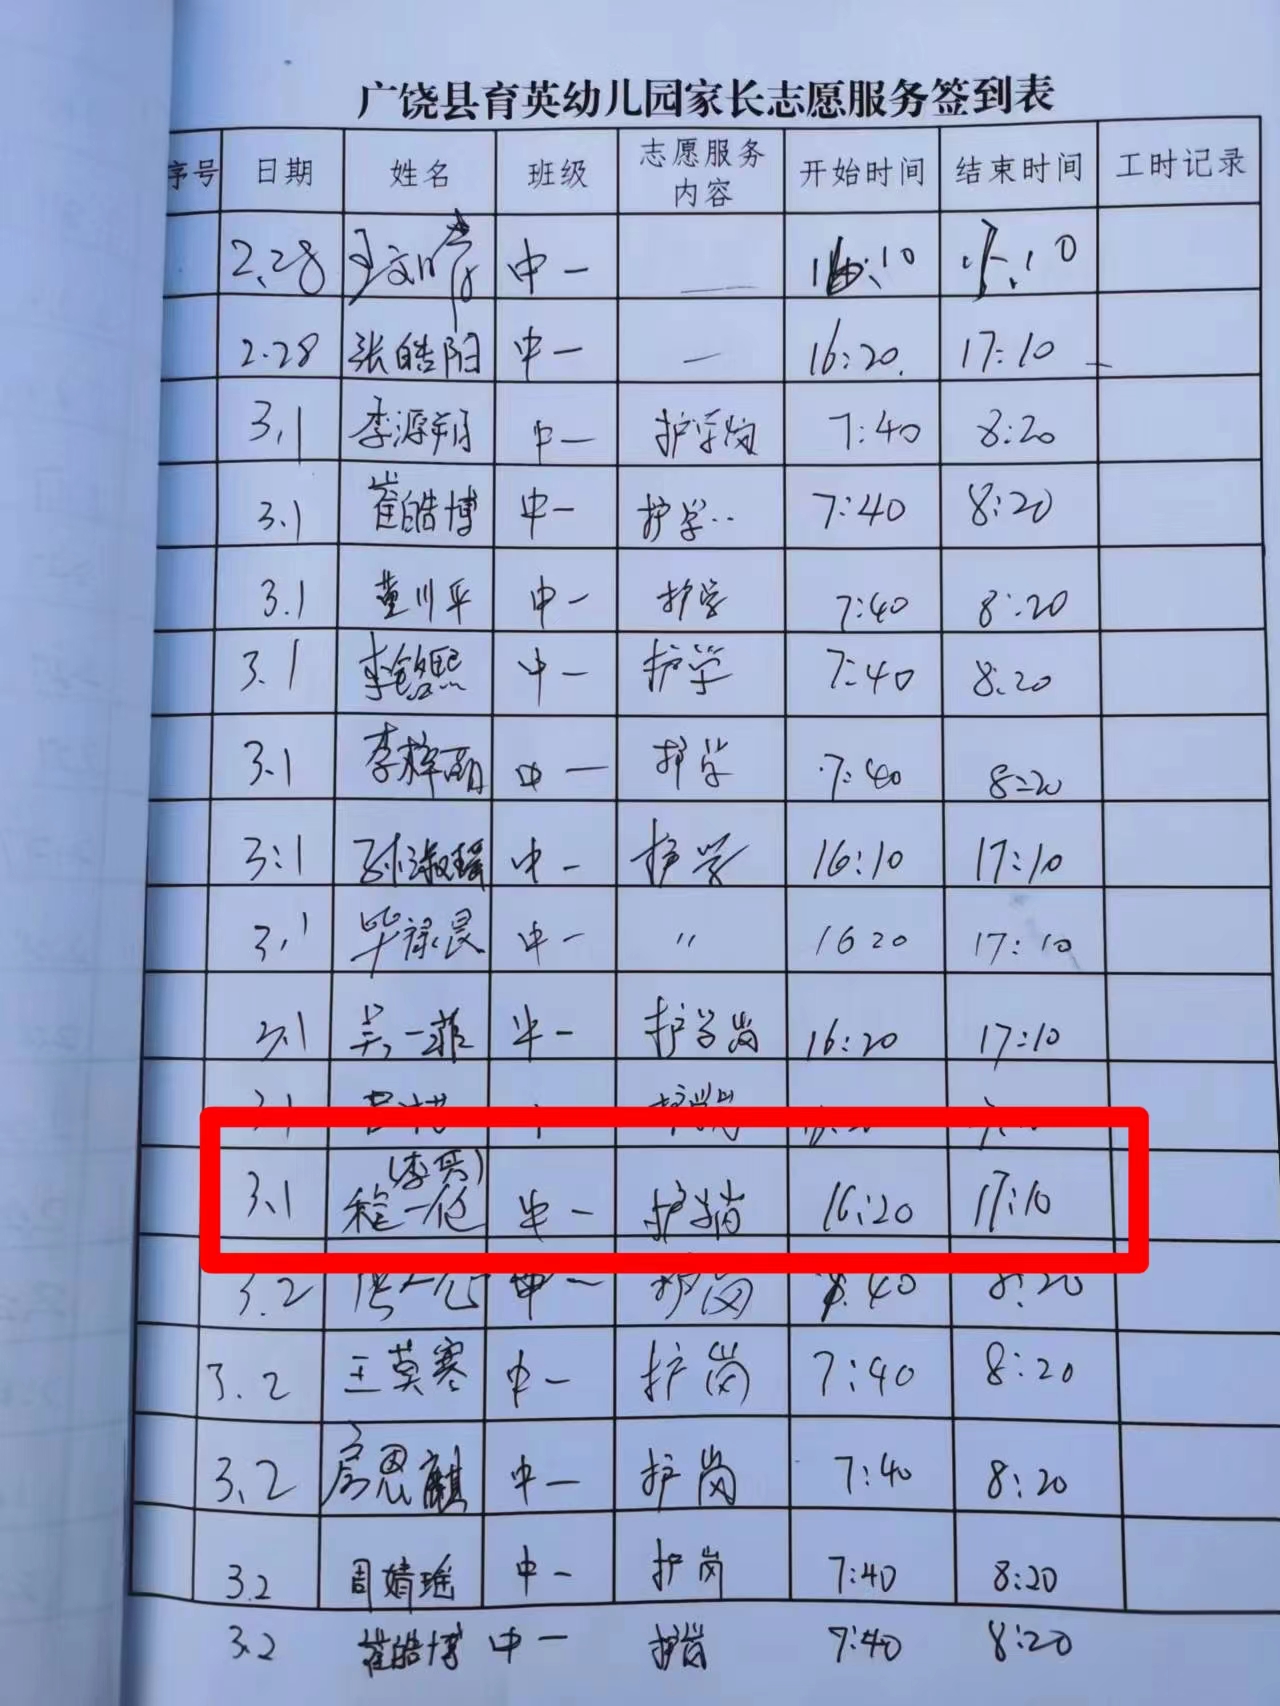 广饶县育英幼儿园家长志愿服务签到表
序号 日期 姓名 班级 志愿服务内容 开始时间 结束时间 工时记录
2.28 中一 — :10 :10
2.28 张皓阳 中一 — 16:20. 17:10
3.1 李源朔 中一 护学岗 7:40 8:20
3.1 崔皓博 中一 护学.. 7:40 8:20
3.1 董川平 中一 护学 7:40 8:20
3.1 李铭熙 中一 护学 7:40 8:20
3.1 李梓 中一 护学 7:40 8:20
3:1 孙淑瑶 中一 护学 16:10 17:10
3.1 毕禄良 中一 〃 16 20 17:10
3.1 吴一菲 中一 护学岗 16:20 17:10
3.1 护学岗
3.1 (李英) 程一伦 中一 护学岗 16:20 17:10
3.2 中一 护岗 7:40 8:20
3.2 王莫寒 中一 护岗 7:40 8:20
3.2 房恩麒 中一 护岗 7:40 8:20
3.2 周婧瑶 中一 护岗 7:40 8:20
3.2 崔皓博 中一 护岗 7:40 8:20